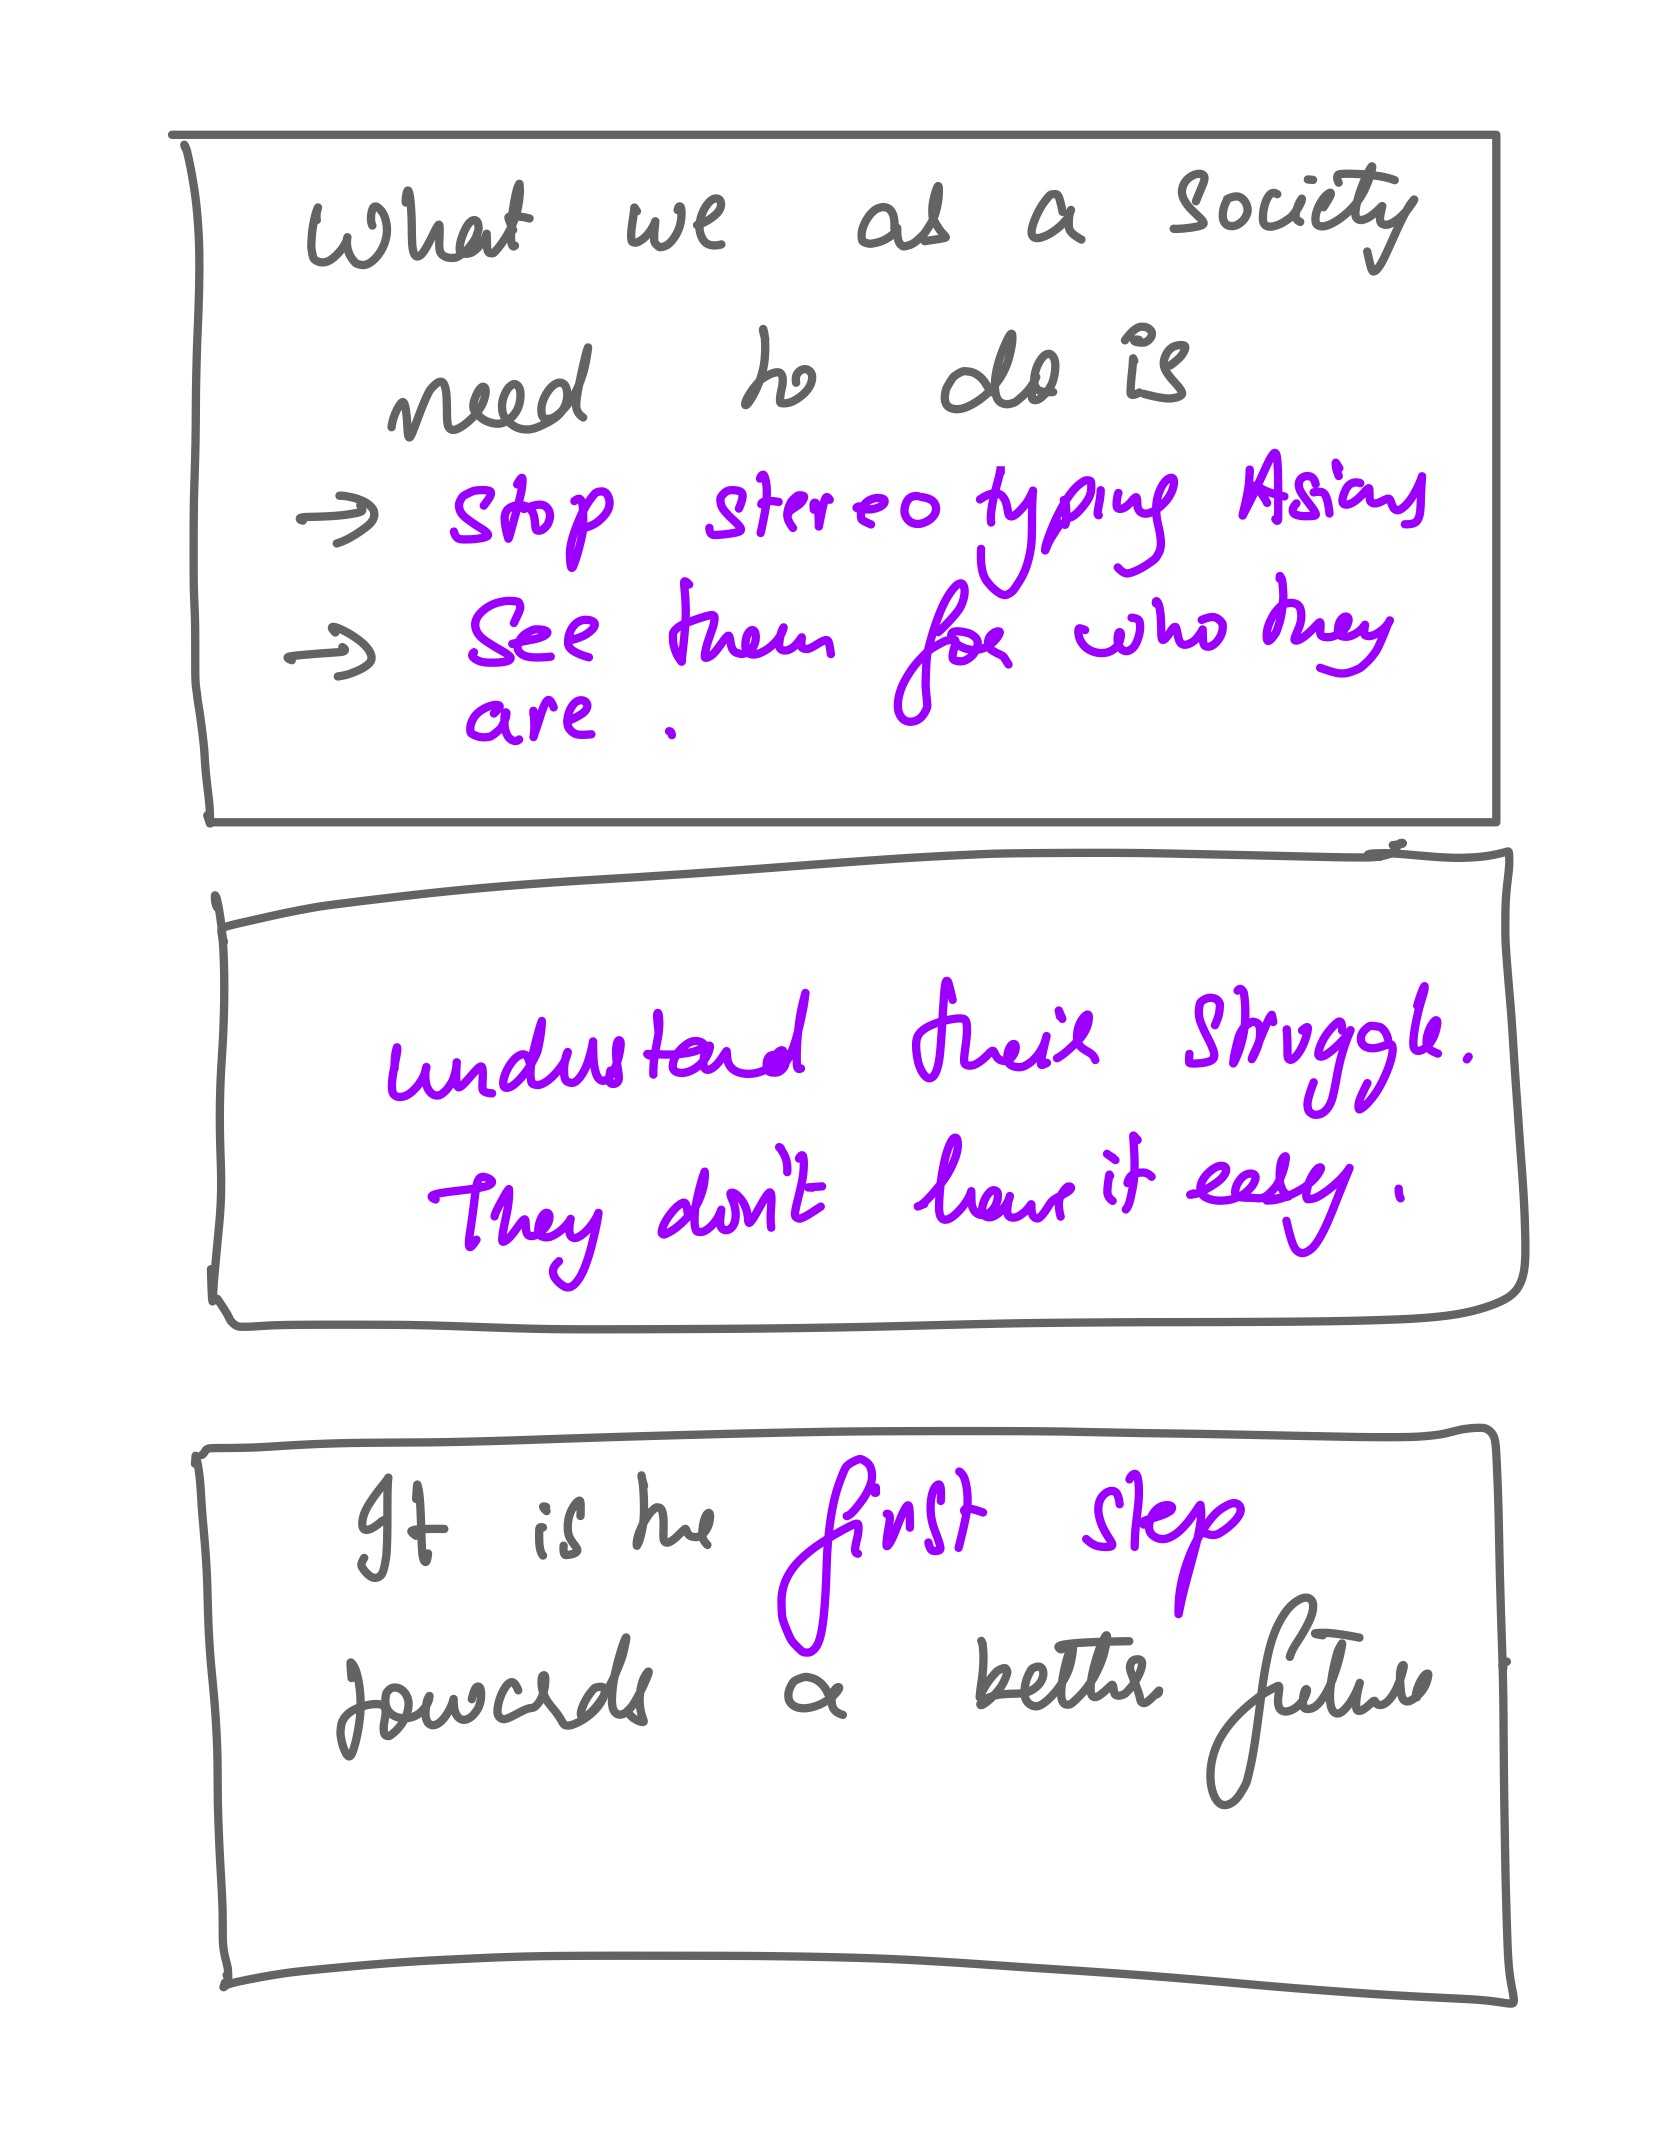 What we as a Society
need to do is
→ Stop stereotyping Asians
→ See them for who they
are.
understand their struggle.
They don't have it easy.
It is the first step
towards a better future